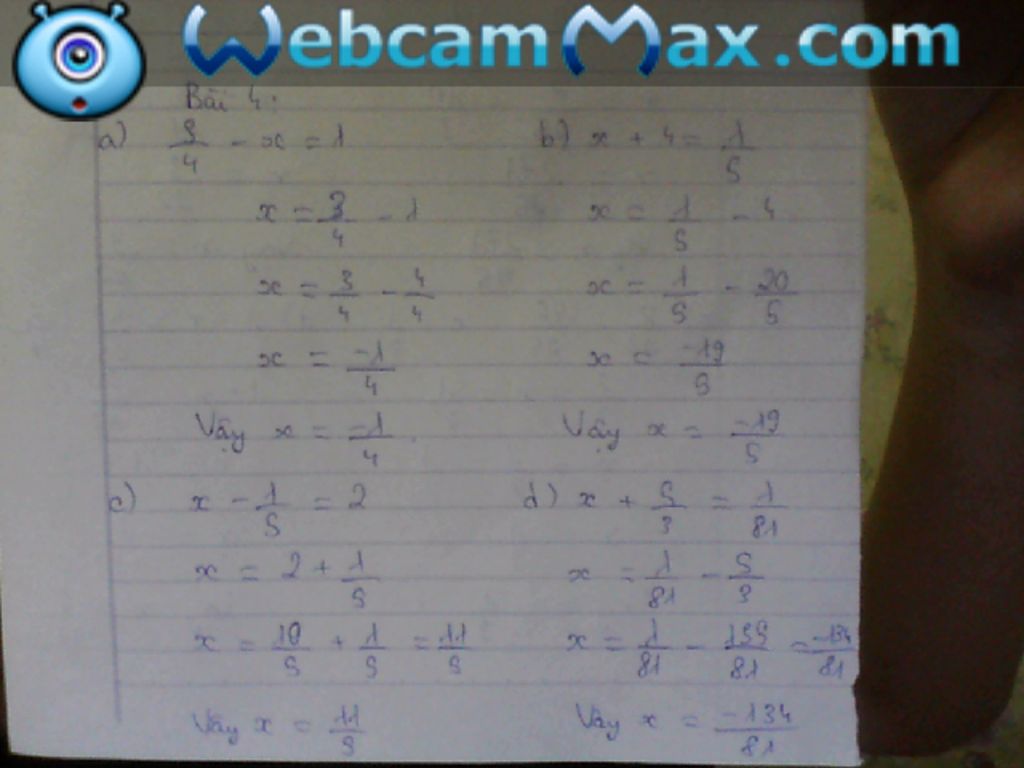 WebcamMax.com
Bài 4:
a) 3/4 - x = 1
x = 3/4 - 1
x = 3/4 - 4/4
x = -1/4
Vậy x = -1/4.
b) x + 4 = 1/5
x = 1/5 - 4
x = 1/5 - 20/5
x = -19/5
Vậy x = -19/5
c) x - 1/5 = 2
x = 2 + 1/5
x = 10/5 + 1/5 = 11/5
Vậy x = 11/5
d) x + 5/3 = 1/81
x = 1/81 - 5/3
x = 1/81 - 135/81 = -134/81
Vậy x = -134/81